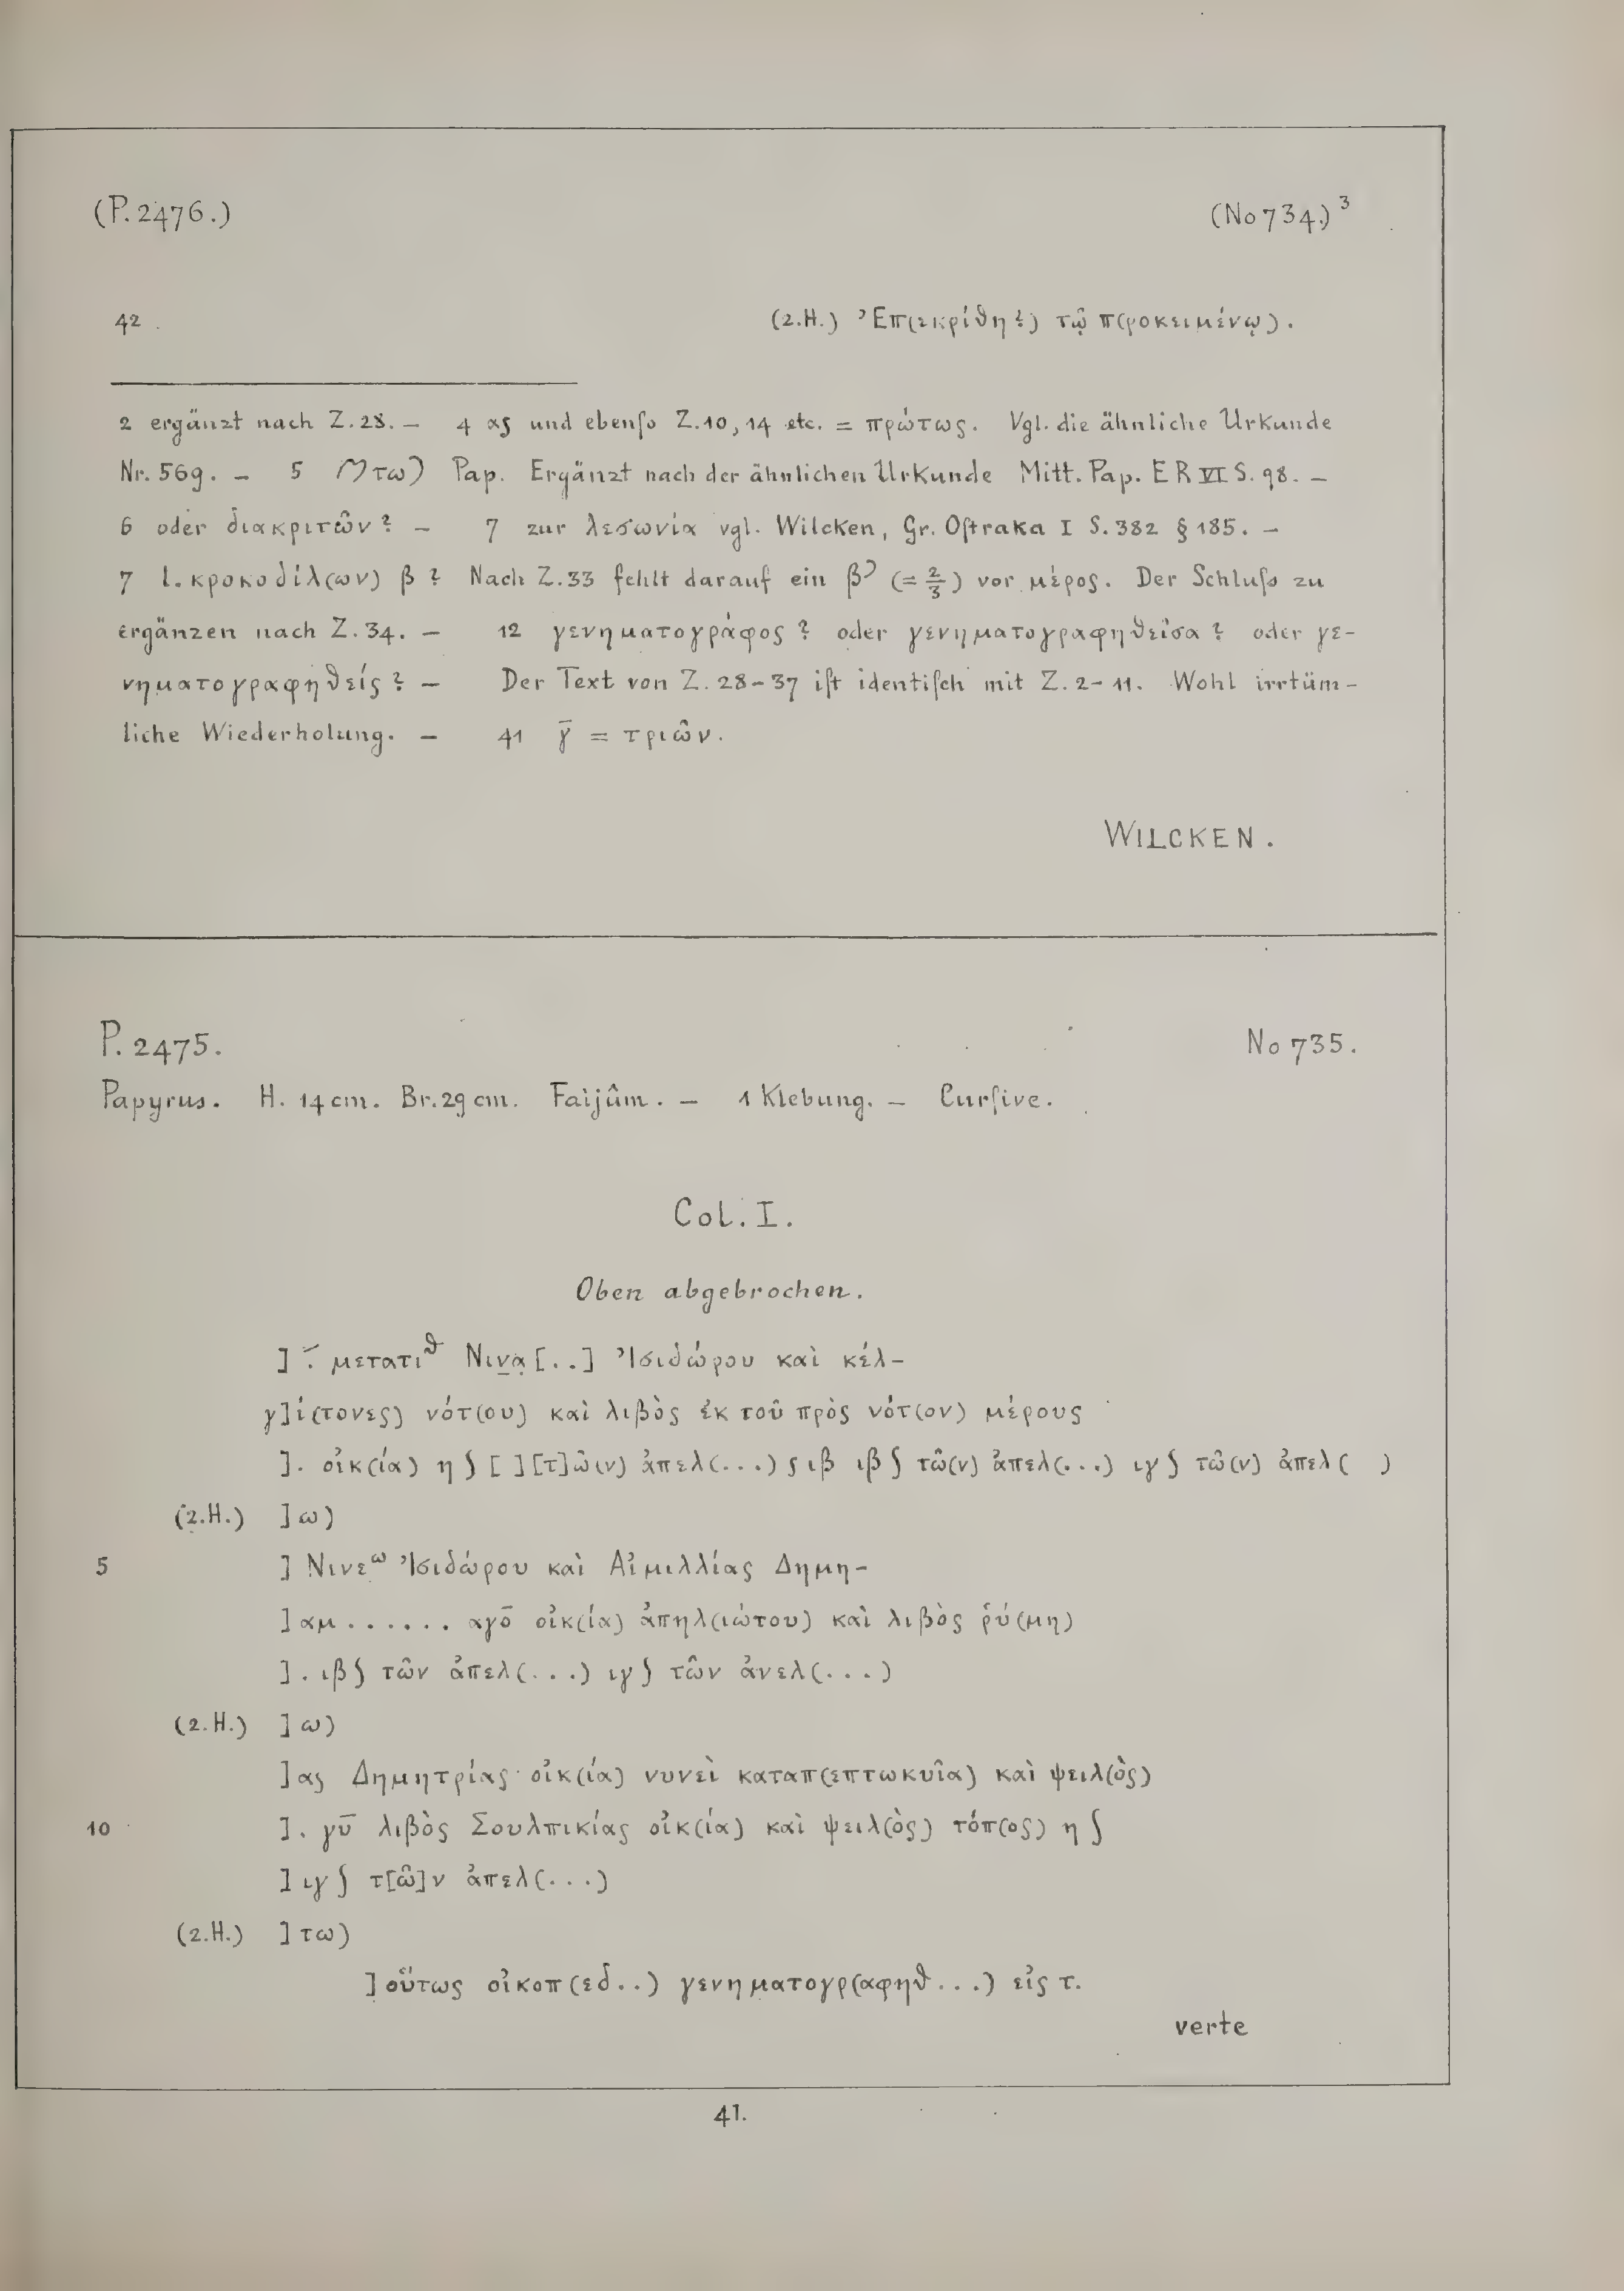 (P. 2476.) (No 734.)³
42 (2.H.) Ἐπ(εκρίθη?) τῷ π(ροκειμένῳ).
2 ergänzt nach Z. 28. – 4 ας und ebenſo Z. 10, 14 etc. = πρώτως. Vgl. die ähnliche Urkunde
Nr. 569. – 5 τω) Pap. Ergänzt nach der ähnlichen Urkunde Mitt. Pap. ER VI S. 98. –
6 oder διακριτῶν? – 7 zur λεσωνία vgl. Wilcken, Gr. Oſtraka I S. 382 § 185. –
7 l. κροκοδίλ(ων) β? Nach Z. 33 fehlt darauf ein β' (= 2/3) vor μέρος. Der Schluſs zu
ergänzen nach Z. 34. – 12 γενηματογράφος? oder γενηματογραφηθεῖσα? oder γε-
νηματογραφηθείς? – Der Text von Z. 28-37 iſt identiſch mit Z. 2-11. Wohl irrtüm-
liche Wiederholung. – 41 γ̄ = τριῶν.
WILCKEN.
P. 2475. No 735.
Papyrus. H. 14 cm. Br. 29 cm. Faijûm. – 1 Klebung. – Curſive.
Col. I.
Oben abgebrochen.
] . μετατιᶿ Νινα̣[..] Ἰσιδώρου καὶ κέλ-
γ]ί(τονες) νότ(ου) καὶ λιβὸς ἐκ τοῦ πρὸς νότ(ον) μέρους
]. οἰκ(ία) η ʃ [ ][τ]ῶ(ν) ἀπελ(...) ς ιβ ιβ ʃ τῶ(ν) ἀπελ(...) ιγ ʃ τῶ(ν) ἀπελ( )
(2.H.) ] ω)
5 ] Νινε̣ω Ἰσιδώρου καὶ Αἰμιλλίας Δημη-
] αμ ...... αγο̄ οἰκ(ία) ἀπηλ(ιώτου) καὶ λιβὸς ῥύ(μη)
]. ιβ ʃ τῶν ἀπελ(...) ιγ ʃ τῶν ἀνελ(...)
(2.H.) ] ω)
]ας Δημητρίας οἰκ(ία) νυνεὶ καταπ(επτωκυῖα) καὶ ψειλ(ὸς)
10 ]. γῡ λιβὸς Σουλπικίας οἰκ(ία) καὶ ψειλ(ὸς) τόπ(ος) η ʃ
] ιγ ʃ τ[ῶ]ν ἀπελ(...)
(2.H.) ] τω)
] οὕτως οἰκοπ(εδ..) γενηματογρ(αφηθ...) εἰς τ.
verte
41.